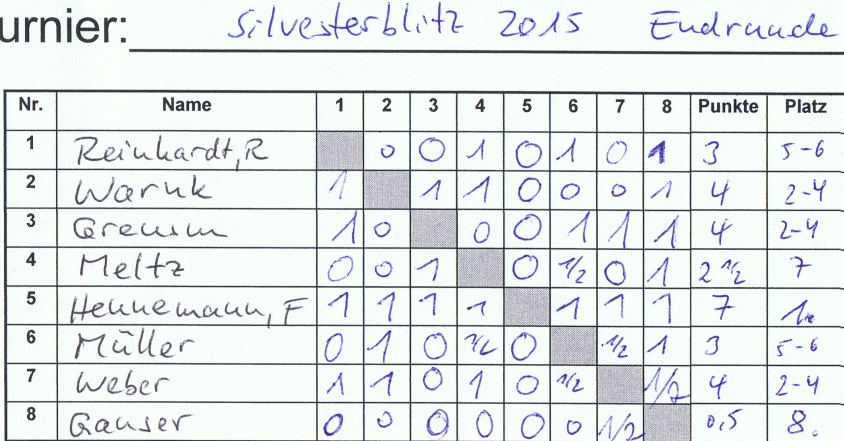 urnier: Silvesterblitz 2015 Endrunde
Nr. Name 1 2 3 4 5 6 7 8 Punkte Platz
1 Reinhardt, R 0 0 1 0 1 0 1 3 5-6
2 Warnk 1 1 1 0 0 0 1 4 2-4
3 1 0 0 0 1 1 1 4 2-4
4 Meltz 0 0 1 0 1/2 0 1 2 1/2 7
5 Hennemann, F 1 1 1 1 1 1 1 7 1.
6 Müller 0 1 0 1/2 0 1/2 1 3 5-6
7 Weber 1 1 0 1 0 1/2 1/2 4 2-4
8 Ganser 0 0 0 0 0 0 1/2 0,5 8.